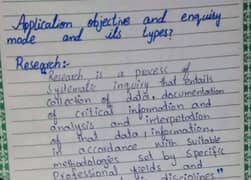 Application objective and enquiry
mode and its types?
Research:-
"Research is a process of
systematic inquiry that entails
collection of data, documentation
of critical information and
analysis and interpretation
of that data, information,
in accordance with suitable
methodologies set by specific
Professional fields and
disciplines"